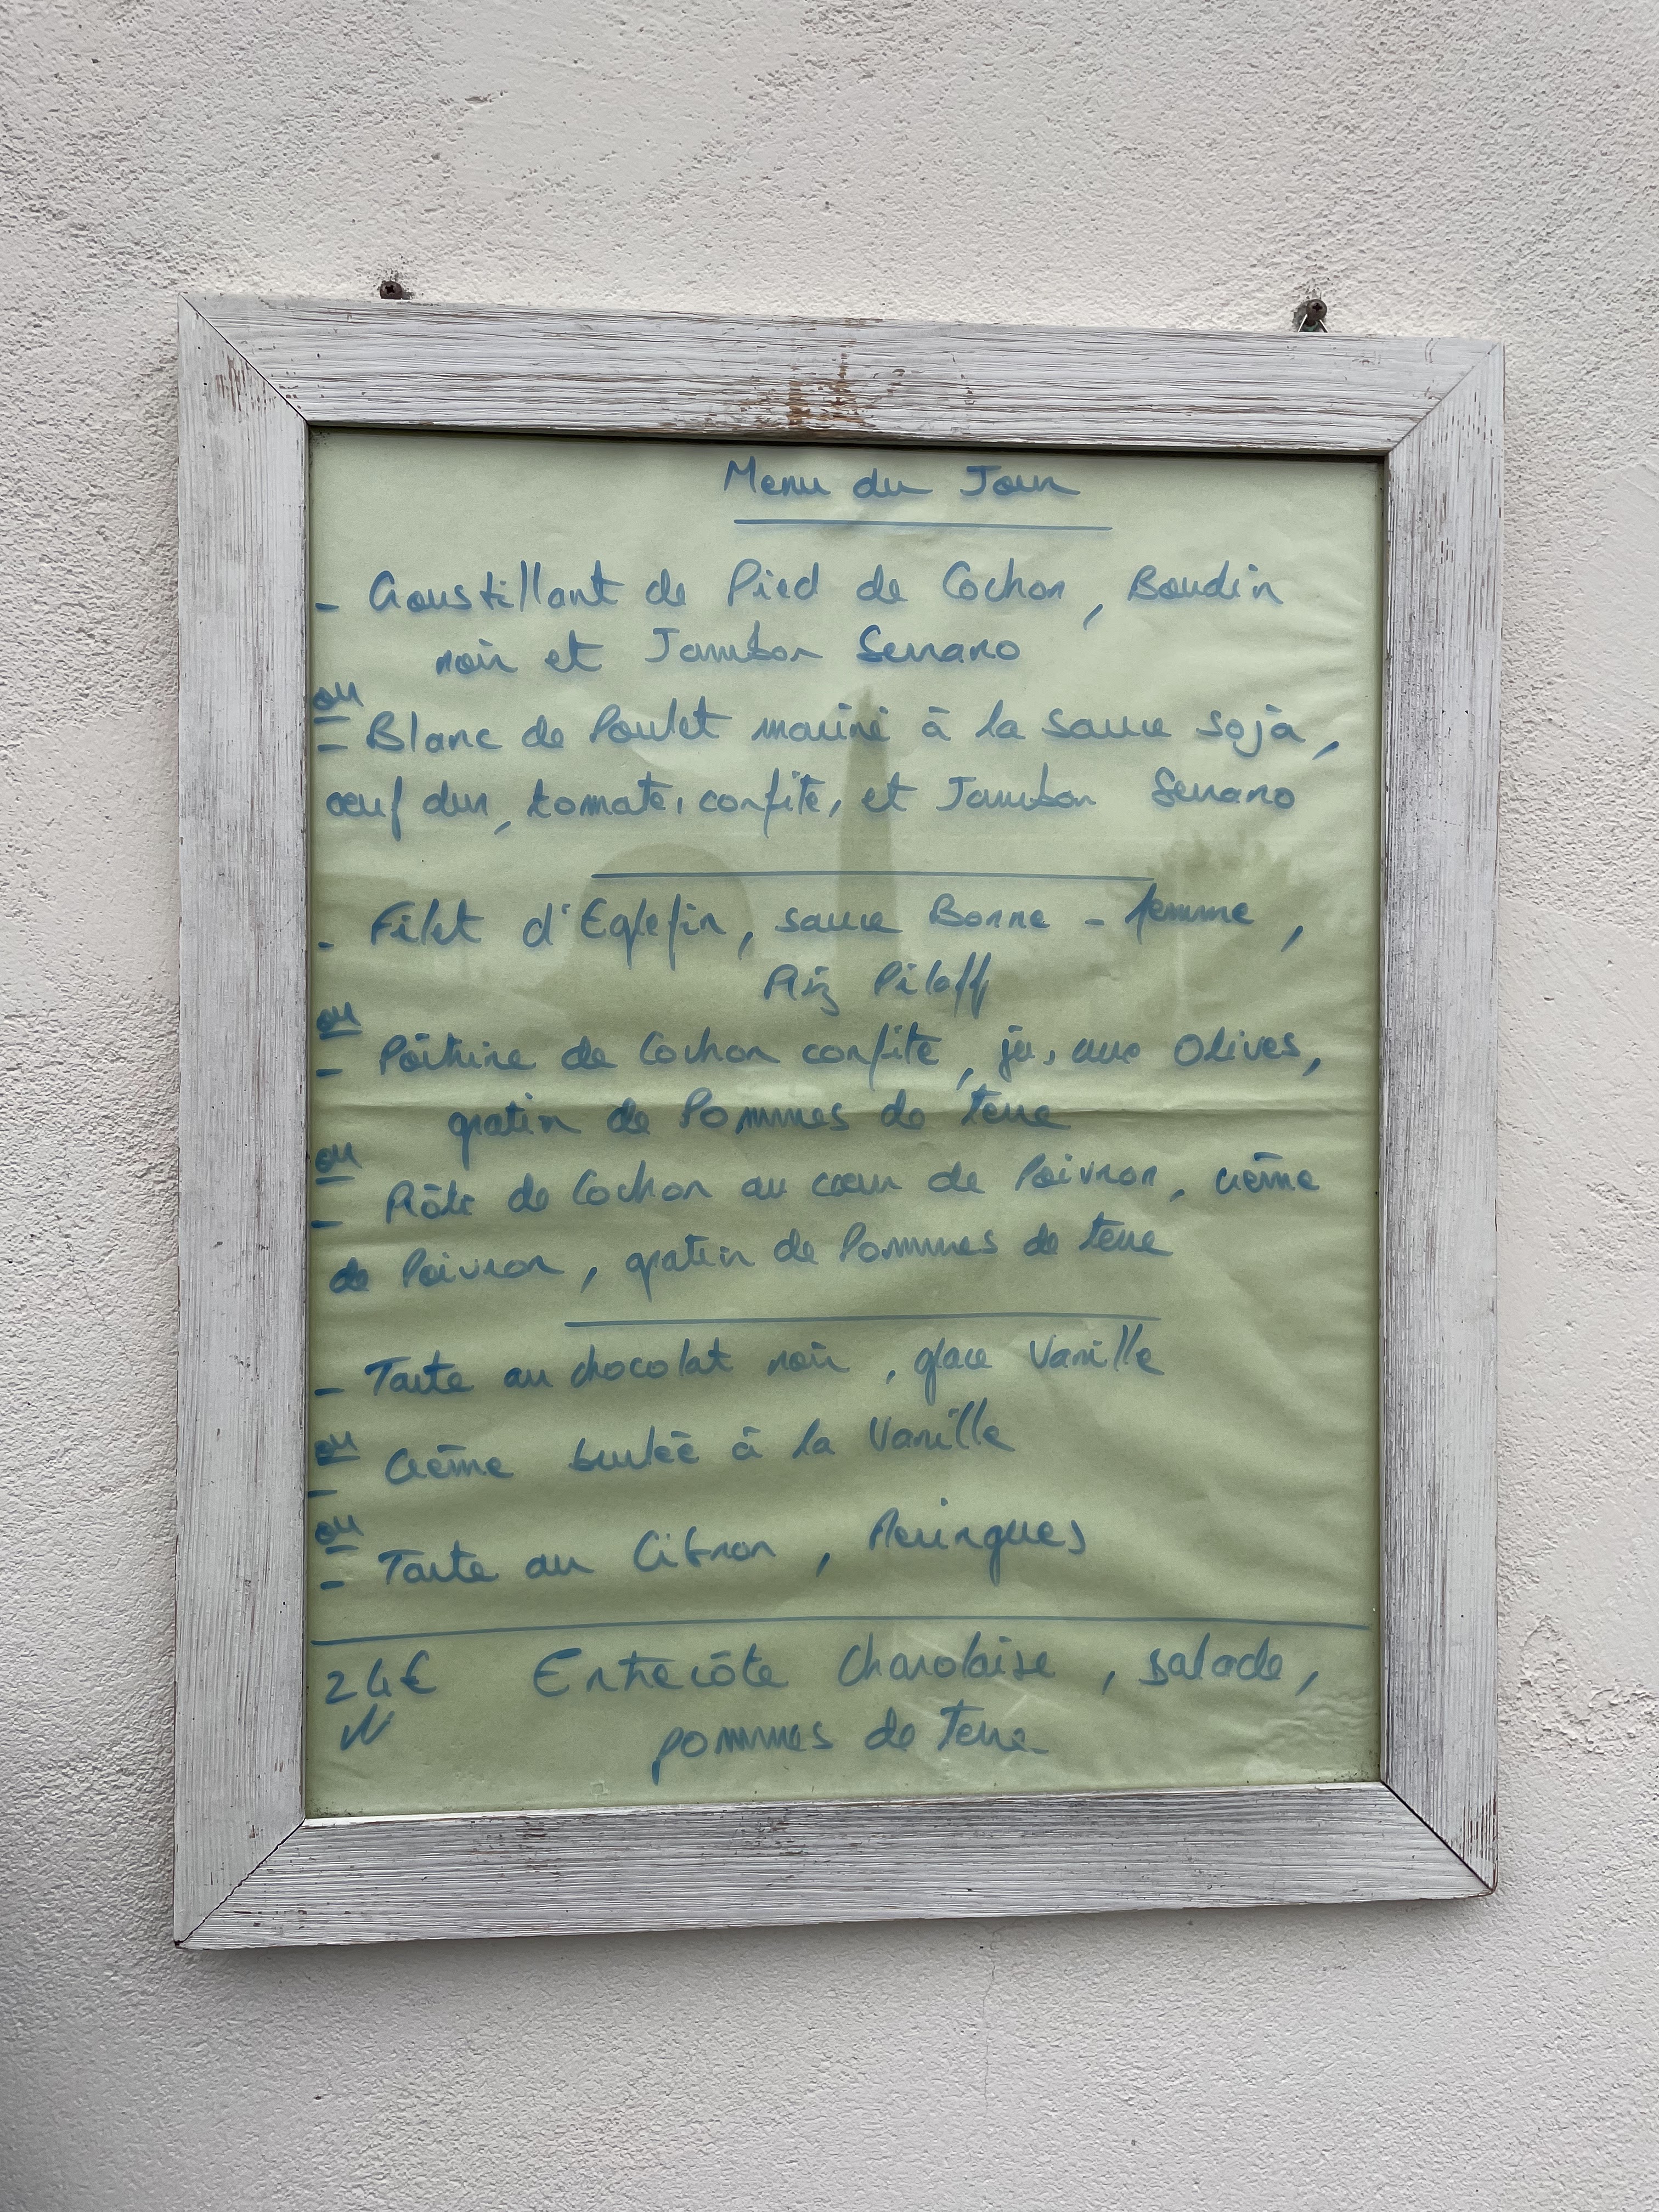 Menu du Jour
- Croustillant de Pied de Cochon, Boudin
noir et Jambon Serrano
ou
- Blanc de Poulet mariné à la sauce soja,
œuf dur, tomates confites et Jambon Serrano
- Filet d'Eglefin, sauce Bonne-femme,
Riz Pilaff
ou
- Poitrine de Cochon confite, jus aux Olives,
gratin de Pommes de terre
ou
- Rôti de Cochon au cœur de Poivron, crème
de Poivron, gratin de Pommes de terre
- Tarte au chocolat noir, glace Vanille
ou
- Crème brulée à la Vanille
ou
- Tarte au Citron, Meringues
24€ Entrecôte Charolaise, salade,
pommes de terre